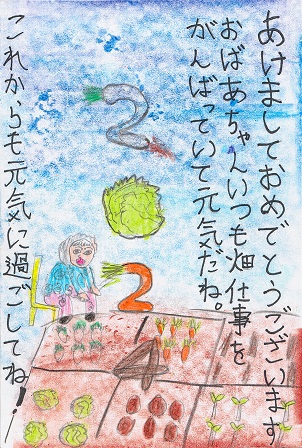 あけましておめでとうございます
おばあちゃんいつも畑仕事を
がんばっていて元気だね。
2024
これからも元気に過ごしてね!!